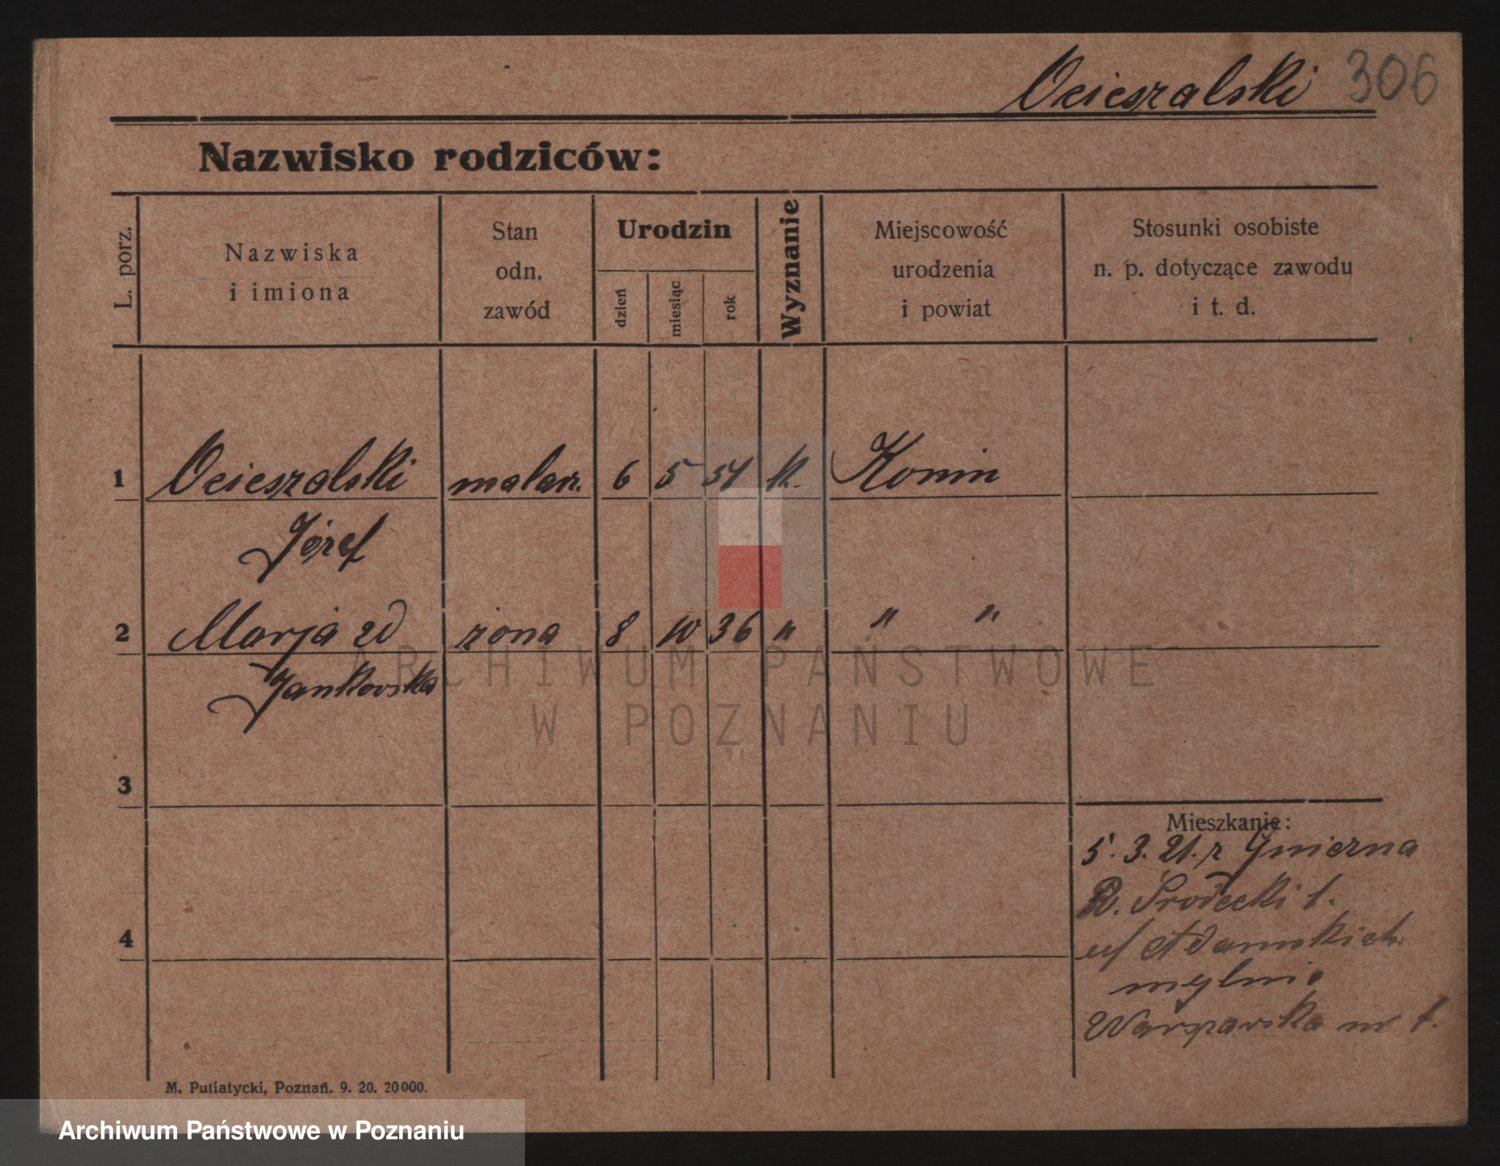 Ocieszalski 306
Nazwisko rodziców:
L. porz.
Nazwiska
i imiona
Stan
odn.
zawód
Urodzin
dzień
miesiąc
rok
Wyznanie
Miejscowość
urodzenia
i powiat
Stosunki osobiste
n. p. dotyczące zawodu
i t. d.
1 Ocieszalski malarz. 6 5 54 k. Konin
Józef
2 Marja zd żona 8 10 36 " " "
Jankowska
3
Mieszkanie:
5. 3. 21. z Gnierna
R. Środecki 1.
u/ Adamskich
mylnie
4
Warszawska nr 1.
M. Putiatycki, Poznań. 9. 20. 20000.
ARCHIWUM PAŃSTWOWE
W POZNANIU
Archiwum Państwowe w Poznaniu